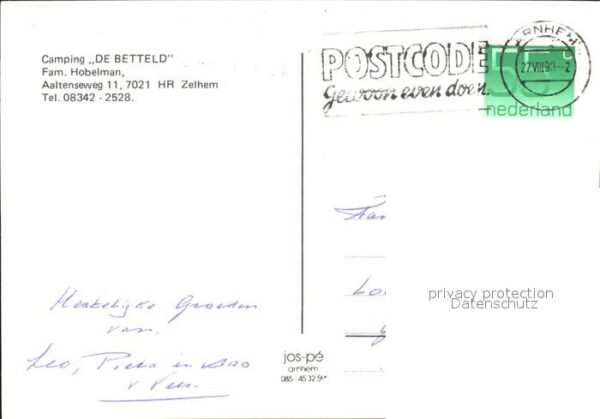 Camping „DE BETTELD"
Fam. Hobelman,
Aaltenseweg 11, 7021 HR Zelhem
Tel. 08342 - 2528.
POSTCODE
Gewoon even doen.
ARNHEM
27.VIII.90.-2
55c
nederland
Hartelijke Groeten
van.
Leo, Pieta en
v Veen.
Fa
Lo
privacy protection
Datenschutz
jos-pé
arnhem
085 - 45 32 51*